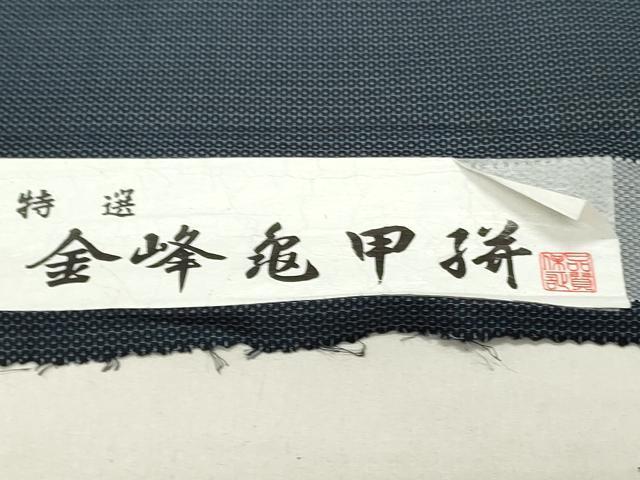 特選
金峰亀甲絣
品質保証